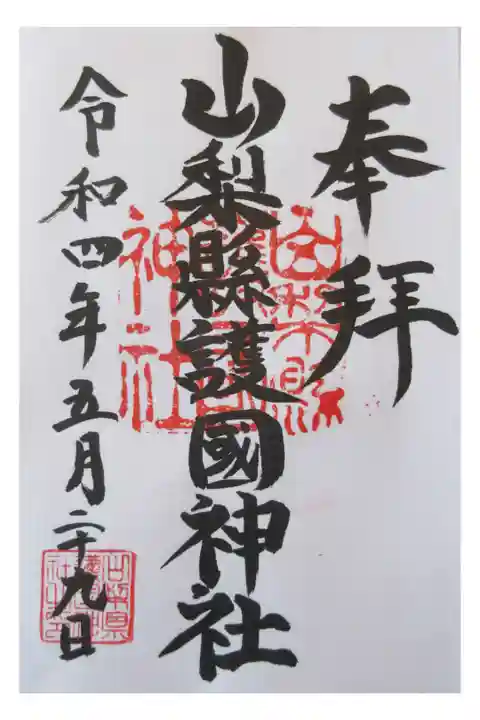 奉拝
山梨縣護國神社
令和四年五月二十九日